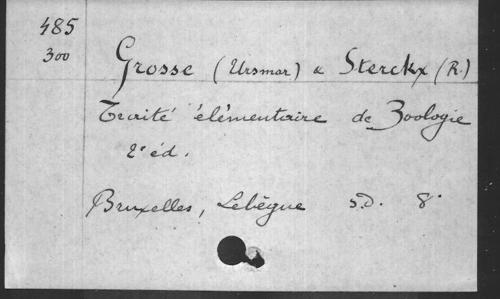 485
300
Grosse (Ursmar) & Sterckx (R.)
Traité élémentaire de Zoologie
2e éd.
Bruxelles, Lebègue s.d. 8°